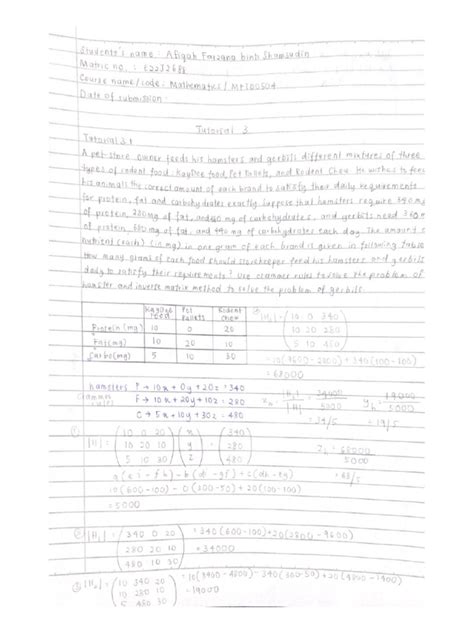 Student's name : Afiqah Farzana binti Shamsudin
Matric no. : E22J2688
Course name/code : Mathematics / MFT00504
Date of submission
Tutorial 3
Tutorial 3.1
A pet-store owner feeds his hamsters and gerbils different mixtures of three
types of rodent food. KayDee food, Pet Pallets, and Rodent Chew. He wishes to feed
his animals the correct amount of each brand to satisfy their daily requirements
for protein, fat and carbohydrates exactly. Suppose that hamsters require 340 mg
of protein, 280 mg of fat, and 480 mg of carbohydrates, and gerbils need
of protein, mg of fat, and mg of carbohydrates each day. The amount
nutrient (each) (in mg) in one gram of each brand is given in following
How many grams of each food should storekeeper feed his hamsters and gerbils
daily to satisfy their requirements? Use crammer rules to solve the problem of
hamster and inverse matrix method to solve the problem of gerbils.
KayDee Feed Pet Pallets Rodent Chew
Protein (mg) 10 0 20
Fat (mg) 10 20 10
Carbo (mg) 5 10 30
hamsters P → 10x + 0y + 20z = 340
F → 10x + 20y + 10z = 280
C → 5x + 10y + 30z = 480
① |H| = (10 0 20) (x) = (340)
(10 20 10) (y) (280)
(5 10 30) (z) (480)
a(ei - fh) - b(di - gf) + c(dh - eg)
10(600-100) - 0(300-50) + 20(100-100)
= 5000
② |H₁| = (340 0 20) = 340(600-100)+20(2800-9600)
(280 20 10) = 34000
(480 10 30)
③ |H₂| = (10 340 20) = 10(8400-4800) - 340(300-50) + 20(4800-1400)
(10 280 10) = 19000
(5 480 30)
④ |H₃| = (10 0 340)
(10 20 280)
(5 10 480)
= 10(9600-2800) + 340(100-100)
= 68000
= 34000 / 5000
= 34/5
= 19000 / 5000
= 19/5
= 68000 / 5000
= 68/5